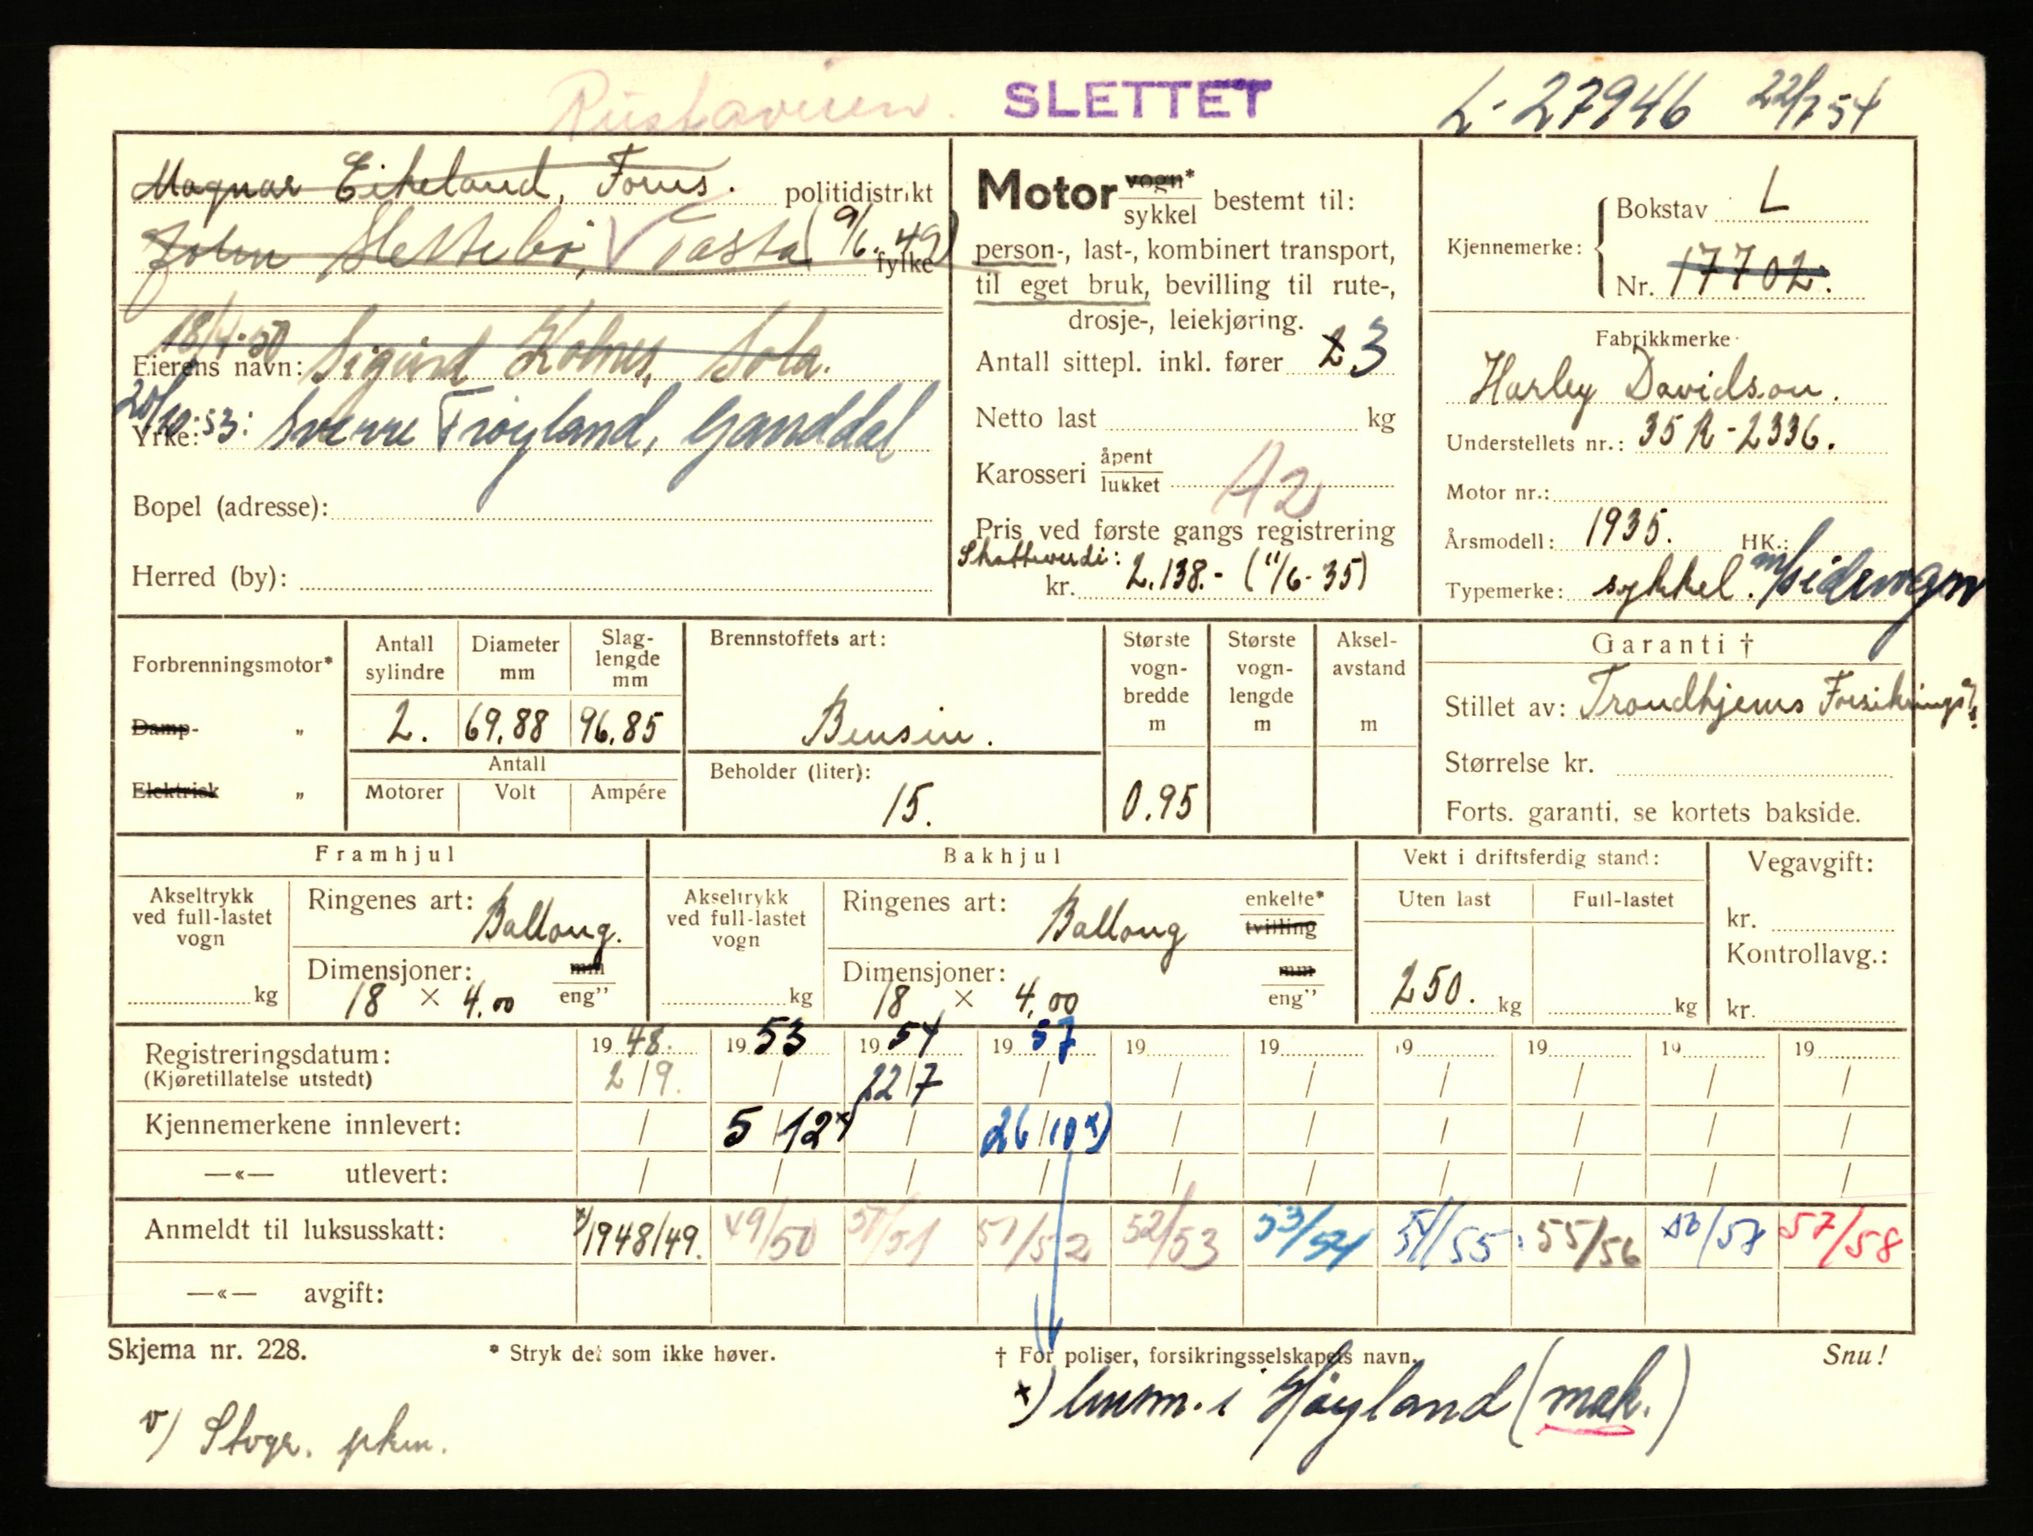 SLETTET L-27946 22/7 54
Magnar Eikeland, Forus. politidistrikt
John Slettebø, V Tasta (9/6-49) fylke
18/4-50 Sigurd Kolnes, Sola.
Eierens navn:
20/10-53: Sverre Frøyland, Ganddal
Yrke:
Bopel (adresse):
Herred (by):
Motor vogn* / sykkel bestemt til:
person-, last-, kombinert transport,
til eget bruk, bevilling til rute-,
drosje-, leiekjøring.
Antall sittepl. inkl. fører 2 3
Netto last kg
Karosseri åpent / lukket A2
Pris ved første gangs registrering
Skatteverdi:
kr. 2.138.- (11/6-35)
Kjennemerke: Bokstav L
Nr. 17702.
Fabrikkmerke
Harley Davidson.
Understellets nr.: 35 R-2336.
Motor nr.:
Årsmodell: 1935. HK.:
Typemerke: sykkel. m/sidevogn
Forbrenningsmotor*
Damp- „
Elektrisk „
Antall sylindre 2.
Diameter mm 69,88
Slag-lengde mm 96,85
Antall
Motorer Volt Ampére
Brennstoffets art:
Bensin.
Beholder (liter):
15.
Største vogn-bredde m 0.95
Største vogn-lengde m
Aksel-avstand m
Garanti †
Stillet av: Trondhjems Forsikrings
Størrelse kr.
Forts. garanti, se kortets bakside.
Framhjul
Akseltrykk ved full-lastet vogn kg
Ringenes art: Ballong.
Dimensjoner: mm / eng”
18 × 4.00
Bakhjul
Akseltrykk ved full-lastet vogn kg
Ringenes art: Ballong enkelte* / tvilling
Dimensjoner: mm / eng”
18 × 4.00
Vekt i driftsferdig stand:
Uten last Full-lastet
250. kg kg
Vegavgift:
kr.
Kontrollavg.:
kr.
Registreringsdatum: 19 48. 19 53 19 54 19 57 19 19 19 19 19 19
(Kjøretillatelse utstedt) 2/9. / 22/7 / / / / / / /
Kjennemerkene innlevert: / 5/12 x) / 26/10 x) / / / / / /
—«— utlevert: / / / / / / / / / /
Anmeldt til luksusskatt: 1948/49. 49/50 50/51 51/52 52/53 53/54 54/55 55/56 56/57 57/58
—«— avgift:
Skjema nr. 228. * Stryk det som ikke høver. † For poliser, forsikringsselskapets navn. Snu!
x) innm. i Høyland (mak.)
v) Stvgr. pkm.